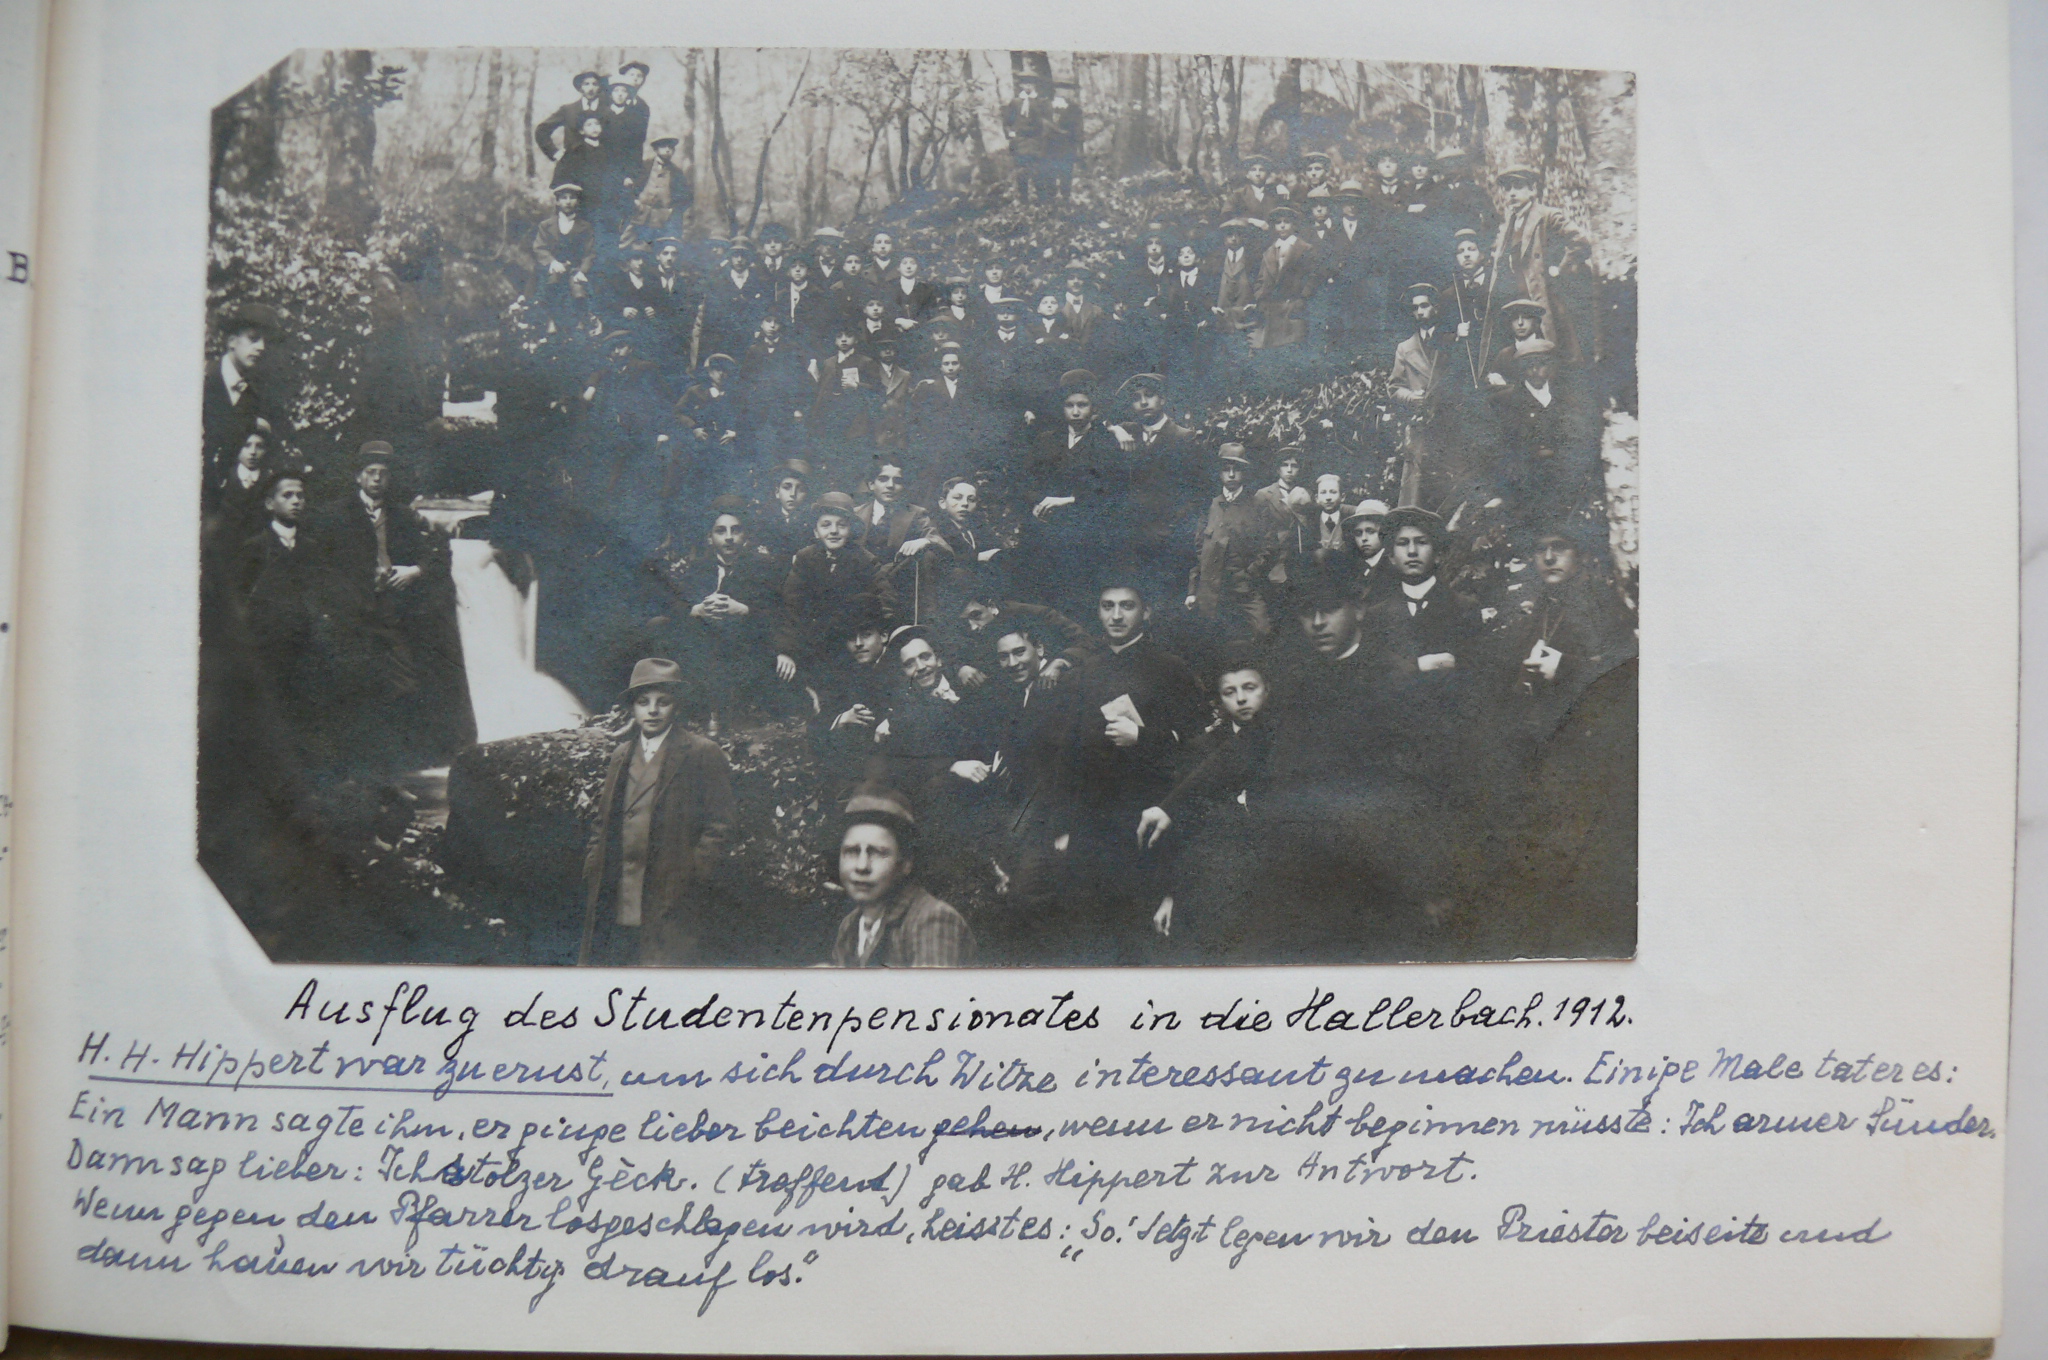 B.
Ausflug des Studentenpensionates in die Hallerbach. 1912.
H. H. Hippert war zu ernst, um sich durch Witze interessant zu machen. Einige Male tat er es:
Ein Mann sagte ihm, er ginge lieber beichten gehen, wenn er nicht beginnen müsste: Ich armer Sünder.
Dann sag lieber: Ich stolzer Gèck. (treffend) gab H. Hippert zur Antwort.
Wenn gegen den Pfarrer losgeschlagen wird, heisst es: „So! Jetzt legen wir den Priester beiseite und
dann hauen wir tüchtig drauf los."